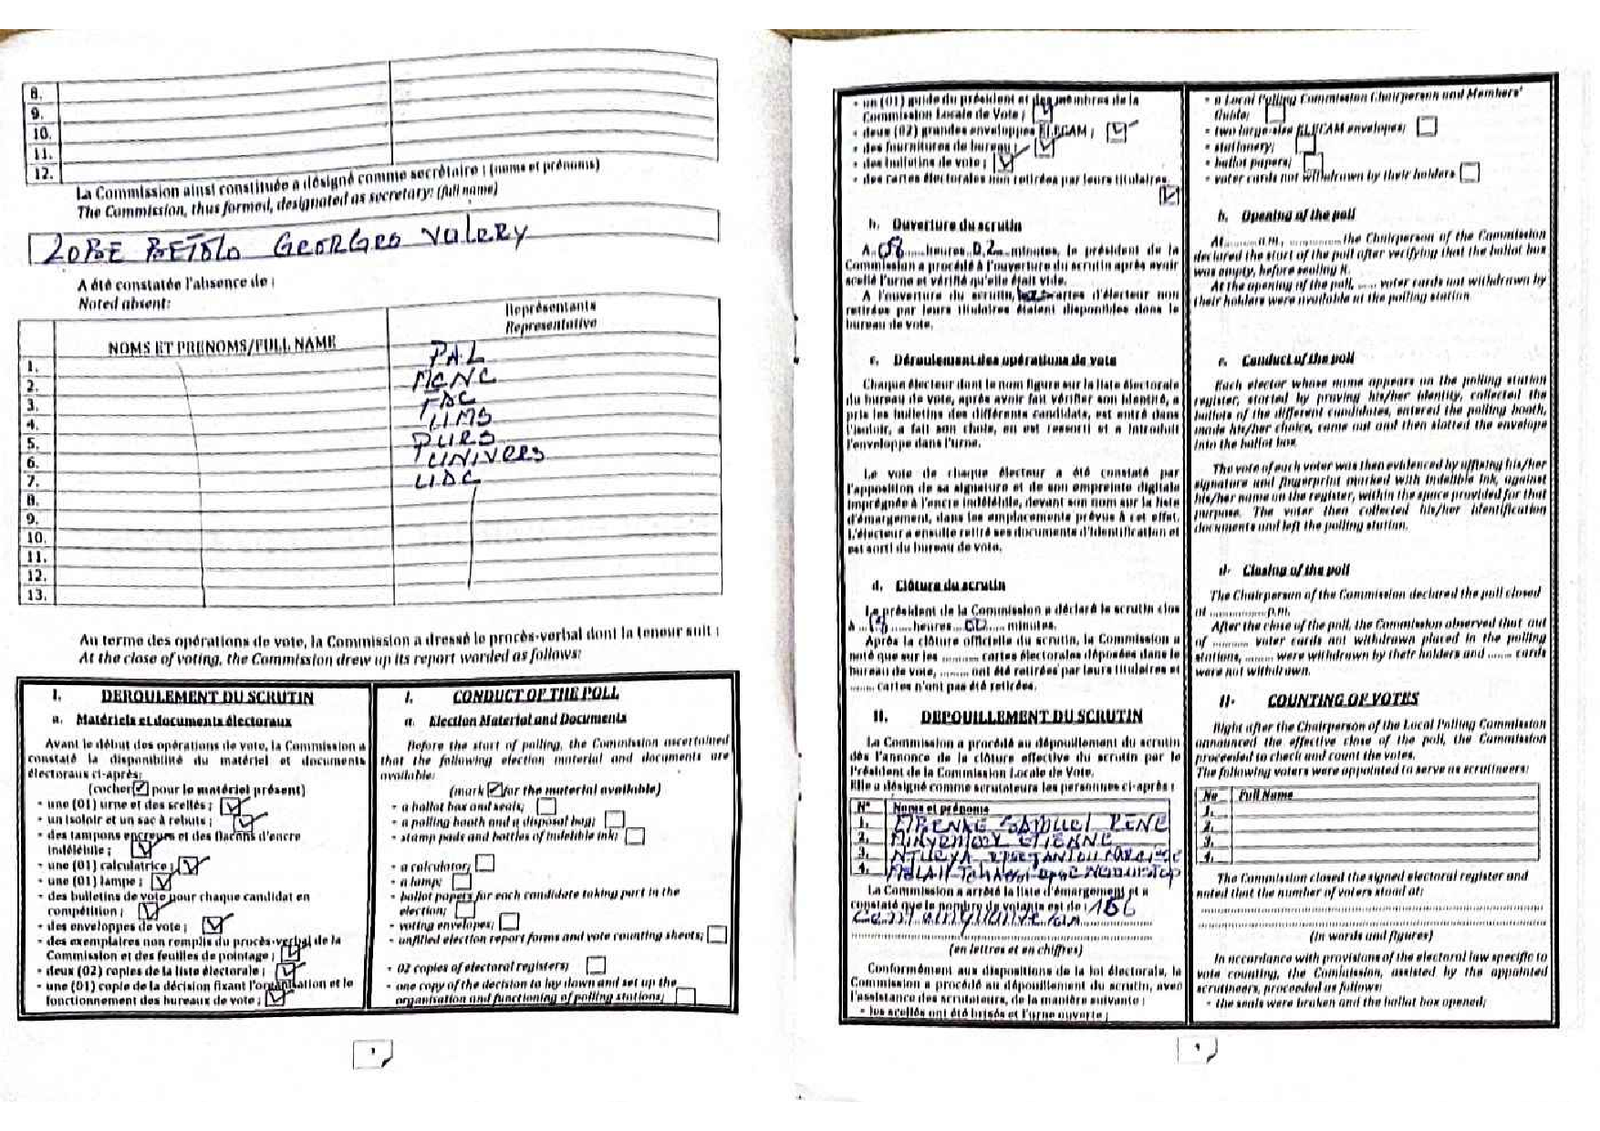 8.
9.
10.
11.
12.
La Commission ainsi constituée a désigné comme secrétaire : (noms et prénoms)
The Commission, thus formed, designated as secretary: (full name)
LOBE BETOLO GEORGES Valery
A été constatée l'absence de :
Noted absent:
NOMS ET PRENOMS/FULL NAME
Représentants
Representative
1. PAL
2. MCNC
3.
4. UMS
5. PURS
6. UNIVERS
7. UDC
8.
9.
10.
11.
12.
13.
Au terme des opérations de vote, la Commission a dressé le procès-verbal dont la teneur suit :
At the close of voting, the Commission drew up its report worded as follows:
I. DEROULEMENT DU SCRUTIN
a. Matériels et documents électoraux
Avant le début des opérations de vote, la Commission a
constaté la disponibilité du matériel et documents
électoraux ci-après:
(cocher pour le matériel présent)
- une (01) urne et des scellés ;
- un isoloir et un sac à rebuts ;
- des tampons encreurs et des flacons d'encre
indélébile ;
- une (01) calculatrice ;
- une (01) lampe ;
- des bulletins de vote pour chaque candidat en
compétition ;
- des enveloppes de vote ;
- des exemplaires non remplis du procès-verbal de la
Commission et des feuilles de pointage ;
- deux (02) copies de la liste électorale ;
- une (01) copie de la décision fixant l'organisation et le
fonctionnement des bureaux de vote ;
I. CONDUCT OF THE POLL
a. Election Material and Documents
Before the start of polling, the Commission ascertained
that the following election material and documents are
available:
(mark for the material available)
- a ballot box and seals;
- a polling booth and a disposal bag;
- stamp pads and bottles of indelible ink;
- a calculator;
- a lamp;
- ballot papers for each candidate taking part in the
election;
- voting envelopes;
- unfilled election report forms and vote counting sheets;
- 02 copies of electoral registers;
- one copy of the decision to lay down and set up the
organisation and functioning of polling stations;
- un (01) guide du président et des membres de la
Commission Locale de Vote ;
- deux (02) grandes enveloppes ELECAM ;
- des fournitures de bureau ;
- des bulletins de vote ;
- des cartes électorales non retirées par leurs titulaires.
b. Ouverture du scrutin
A 08 heures 02 minutes, le président de la
Commission a procédé à l'ouverture du scrutin après avoir
scellé l'urne et vérifié qu'elle était vide.
A l'ouverture du scrutin, cartes d'électeur non
retirées par leurs titulaires étaient disponibles dans le
bureau de vote.
c. Déroulement des opérations de vote
Chaque électeur dont le nom figure sur la liste électorale
du bureau de vote, après avoir fait vérifier son identité, a
pris les bulletins des différents candidats, est entré dans
l'isoloir, a fait son choix, en est ressorti et a introduit
l'enveloppe dans l'urne.
Le vote de chaque électeur a été constaté par
l'apposition de sa signature et de son empreinte digitale
imprégnée à l'encre indélébile, devant son nom sur la liste
d'émargement, dans les emplacements prévus à cet effet.
L'électeur a ensuite retiré ses documents d'identification et
est sorti du bureau de vote.
d. Clôture du scrutin
Le président de la Commission a déclaré le scrutin clos
à heures minutes.
Après la clôture officielle du scrutin, la Commission a
noté que sur les .......... cartes électorales déposées dans le
bureau de vote, ....... ont été retirées par leurs titulaires et
....... cartes n'ont pas été retirées.
II. DEPOUILLEMENT DU SCRUTIN
La Commission a procédé au dépouillement du scrutin
dès l'annonce de la clôture effective du scrutin par le
Président de la Commission Locale de Vote.
Elle a désigné comme scrutateurs les personnes ci-après :
N° Noms et prénoms
1. SAMUEL RENE
2. ETIENNE
3.
4.
La Commission a arrêté la liste d'émargement et a
constaté que le nombre de votants est de : 156
(en lettres et en chiffres)
Conformément aux dispositions de la loi électorale, la
Commission a procédé au dépouillement du scrutin, avec
l'assistance des scrutateurs, de la manière suivante :
- les scellés ont été brisés et l'urne ouverte ;
- a Local Polling Commission Chairperson and Members'
Guide;
- two large-size ELECAM envelopes;
- stationery;
- ballot papers;
- voter cards not withdrawn by their holders
b. Opening of the poll
At........ a.m, ............... the Chairperson of the Commission
declared the start of the poll after verifying that the ballot box
was empty, before sealing it.
At the opening of the poll, ...... voter cards not withdrawn by
their holders were available at the polling station.
c. Conduct of the poll
Each elector whose name appears on the polling station
register, started by proving his/her identity, collected the
ballots of the different candidates, entered the polling booth,
made his/her choice, came out and then slotted the envelope
into the ballot box.
The vote of each voter was then evidenced by affixing his/her
signature and fingerprint marked with indelible ink, against
his/her name on the register, within the space provided for that
purpose. The voter then collected his/her identification
documents and left the polling station.
d- Closing of the poll
The Chairperson of the Commission declared the poll closed
at ............... p.m.
After the close of the poll, the Commission observed that out
of ......... voter cards not withdrawn placed in the polling
stations, ....... were withdrawn by their holders and ...... cards
were not withdrawn.
II- COUNTING OF VOTES
Right after the Chairperson of the Local Polling Commission
announced the effective close of the poll, the Commission
proceeded to check and count the votes.
The following voters were appointed to serve as scrutineers:
No Full Name
1.
2.
3.
4.
The Commission closed the signed electoral register and
noted that the number of voters stood at:
(in words and figures)
In accordance with provisions of the electoral law specific to
vote counting, the Commission, assisted by the appointed
scrutineers, proceeded as follows:
- the seals were broken and the ballot box opened;